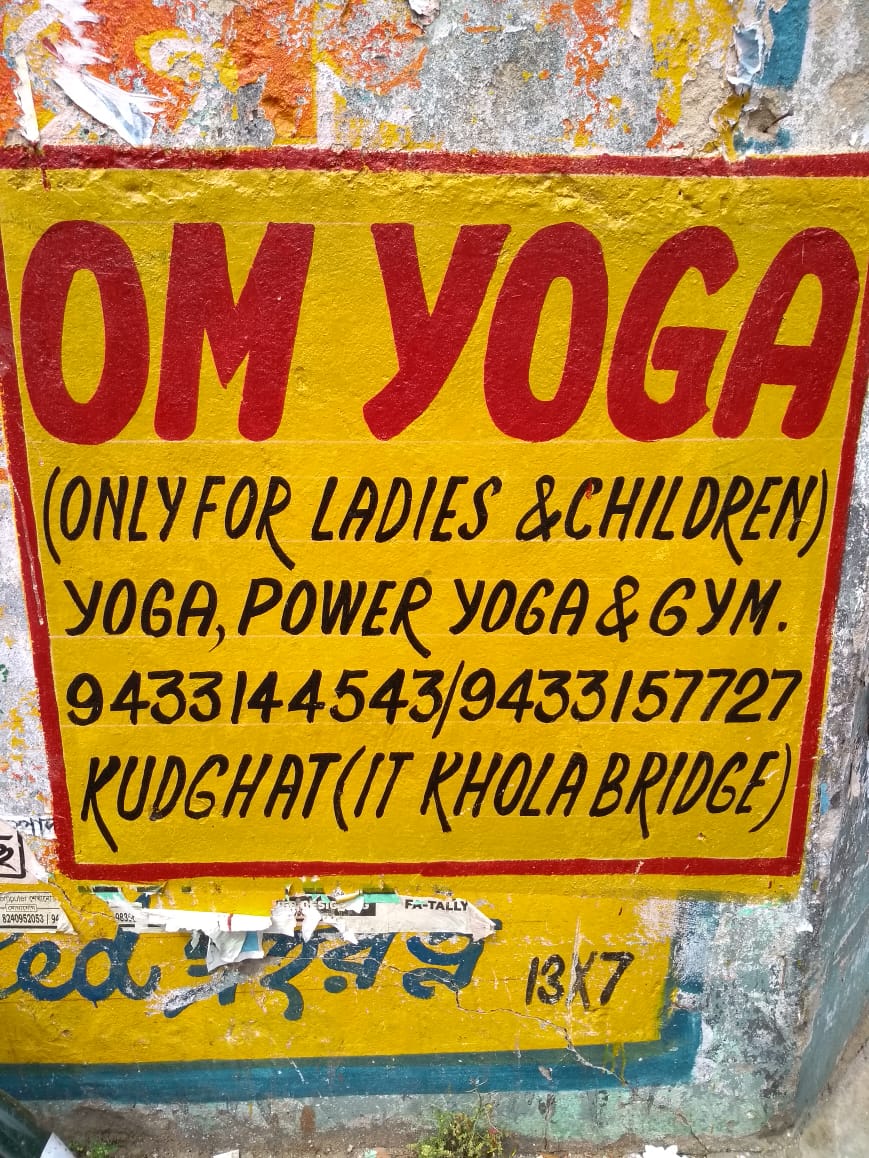 OM YOGA
(ONLY FOR LADIES & CHILDREN)
YOGA, POWER YOGA & GYM.
9433144543/9433157727
KUDGHAT (IT KHOLA BRIDGE)
8240952053 | 94
FA-TALLY
ed
13X7